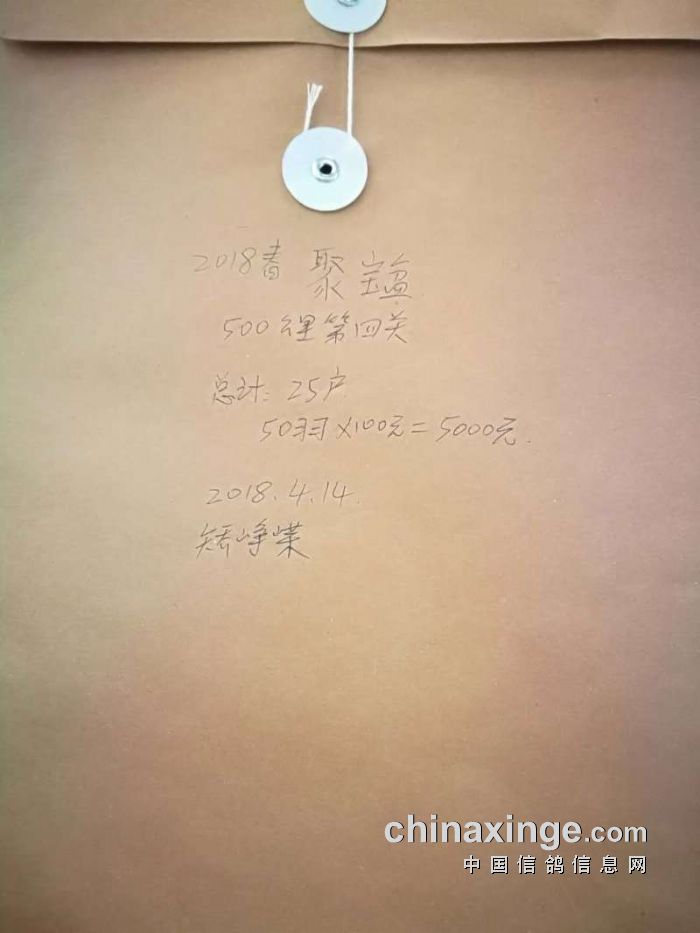 2018春 聚宝盆
500公里第四关
总计：25户
50羽×100元=5000元.
2018.4.14.
矫峥嵘
chinaxinge.com
中国信鸽信息网